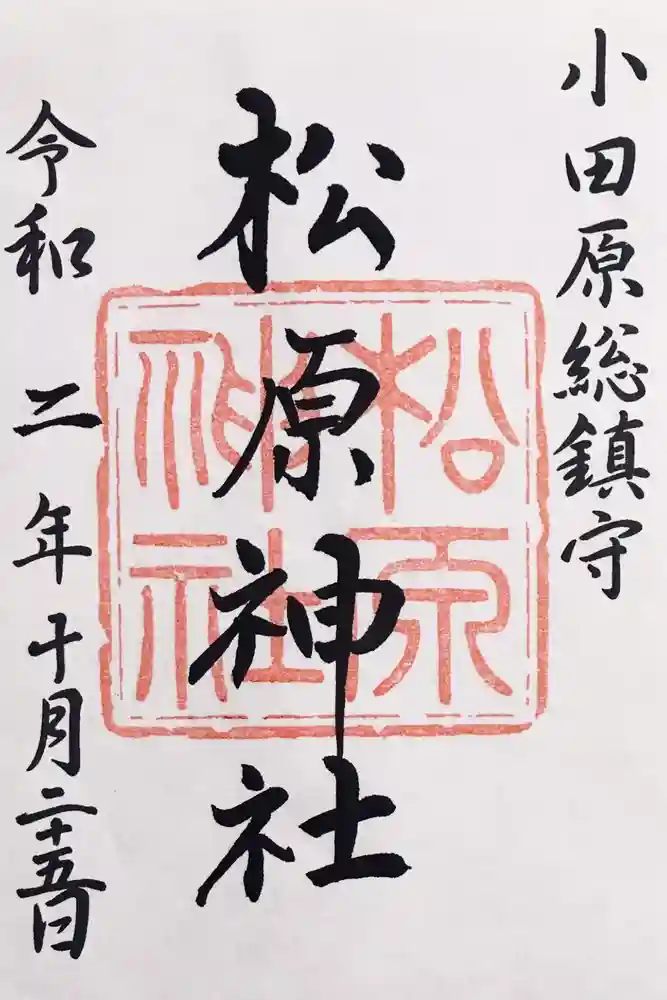 小田原総鎮守
松原神社
松原
神社
令和二年十月二十五日